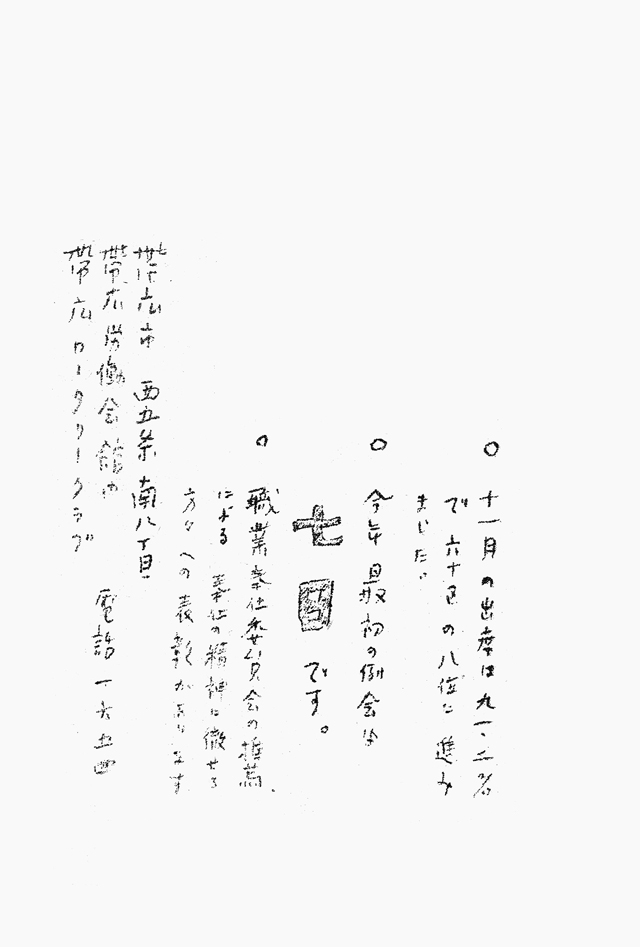 ○ 十一月の出席は九一・二名
で六十区の八位に進み
ました。
○ 今年最初の例会は
七日です。
○ 職業奉仕委員会の推薦
による 奉仕の精神に徹せる
方々への表彰があります
帯広市 西五条南八丁目
帯広労働会館内
電話 一六五四
帯広ロータリークラブ